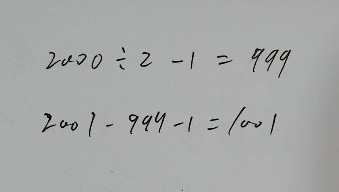 2000 ÷ 2 - 1 = 999
2001 - 999 - 1 = 1001